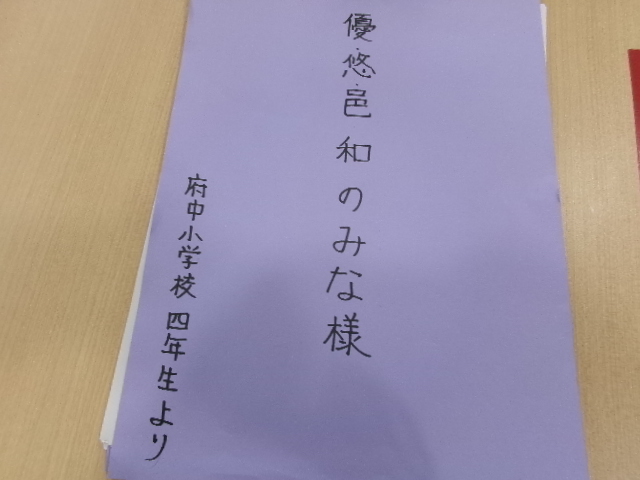 優・悠・邑 和のみな様
府中小学校 四年生より